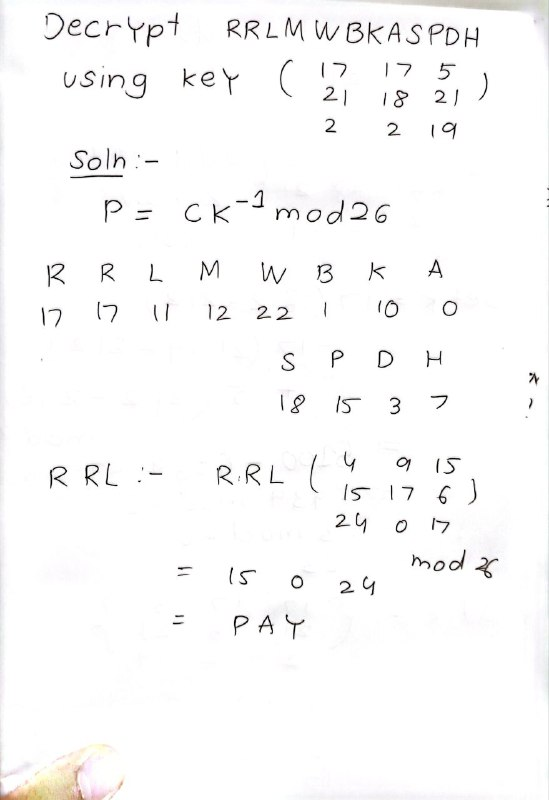 Decrypt RRLMWBKASPDH
using key ( 17 17 5
21 18 21 )
2 2 19
Soln :-
P = CK⁻¹ mod 26
R R L M W B K A
17 17 11 12 22 1 10 0
S P D H
18 15 3 7
R RL :- R.RL ( 4 9 15
15 17 6 )
24 0 17
= 15 0 24 mod 26
= PAY